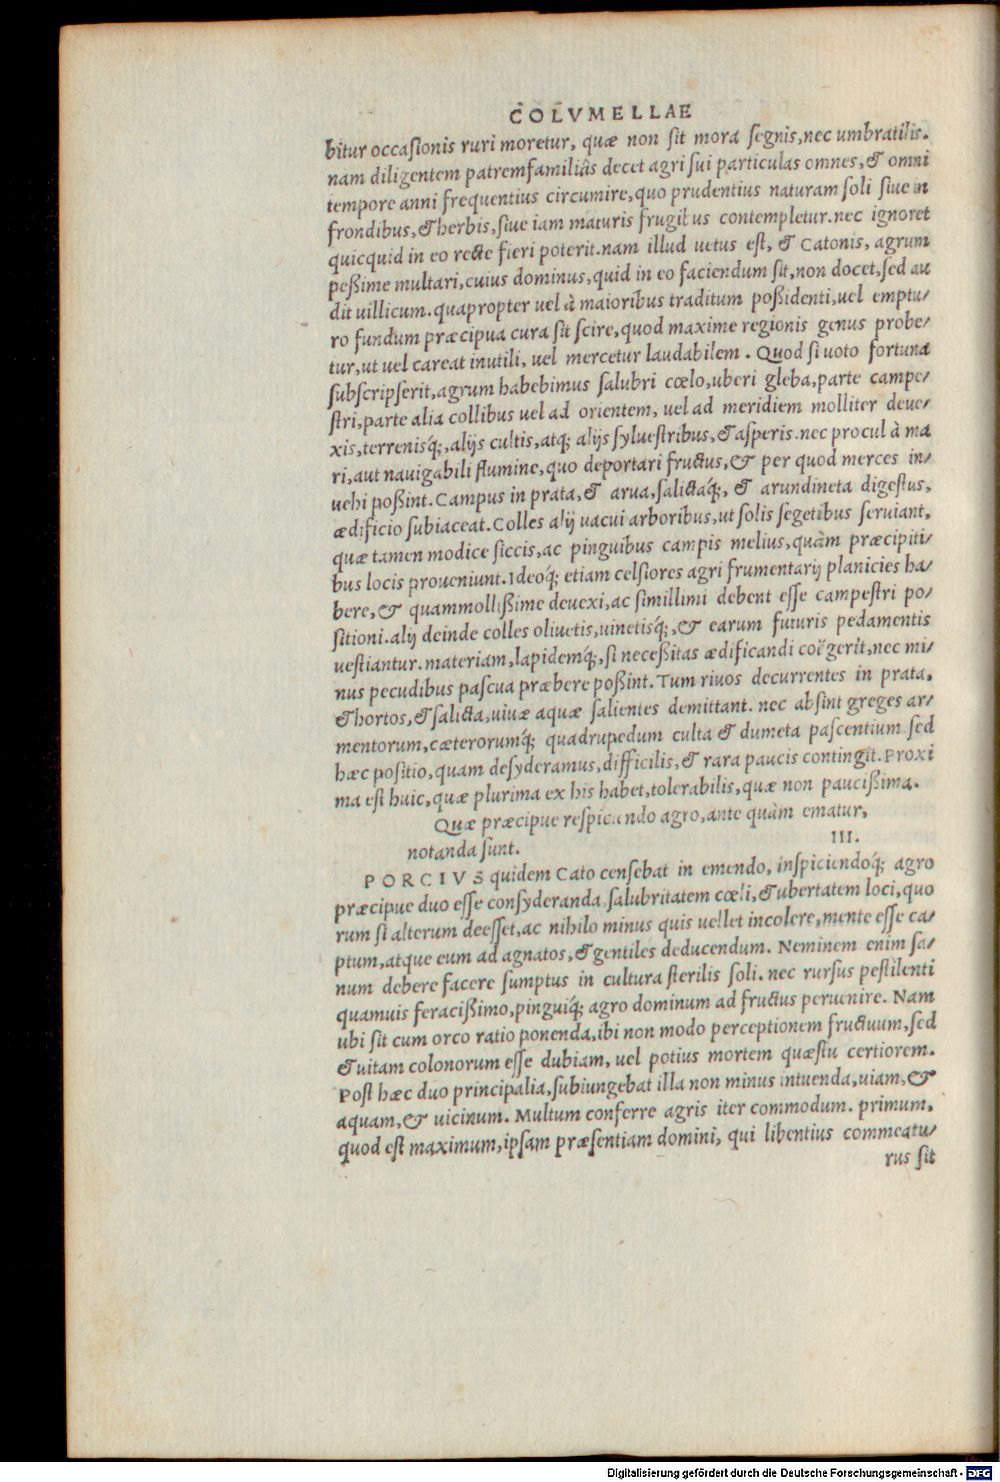 COLVMELLAE
bitur occasionis ruri moretur, quæ non sit mora segnis, nec umbratilis.
nam diligentem patremfamiliâs decet agri sui particulas omnes, & omni
tempore anni frequentius circumire, quo prudentius naturam soli siue in
frondibus, & herbis, siue iam maturis frugibus contempletur. nec ignoret
quicquid in eo recte fieri poterit. nam illud uetus est, & Catonis, agrum
peßime multari, cuius dominus, quid in eo faciendum sit, non docet, sed au
dit uillicum. quapropter uel à maioribus traditum poßidenti, uel emptu/
ro fundum præcipua cura sit scire, quod maxime regionis genus probe/
tur, ut uel careat inutili, uel mercetur laudabilem. Quod si uoto fortuna
subscripserit, agrum habebimus salubri cœlo, uberi gleba, parte campe/
stri, parte alia collibus uel ad orientem, uel ad meridiem molliter deue/
xis, terrenisq́;, alijs cultis, atq; alijs syluestribus, & asperis. nec procul à ma
ri, aut nauigabili flumine, quo deportari fructus, & per quod merces in/
uehi poßint. Campus in prata, & arua, salictaq́;, & arundineta digestus,
ædificio subiaceat. Colles alij uacui arboribus, ut solis segetibus seruiant,
quæ tamen modice siccis, ac pinguibus campis melius, quàm præcipiti/
bus locis proueniunt. Ideoq́; etiam celsiores agri frumentarij planicies ha/
bere, & quammollißime deuexi, ac simillimi debent esse campestri po/
sitioni. alij deinde colles oliuetis, uinetisq́;, & earum futuris pedamentis
uestiantur. materiam, lapidemq́;, si neceßitas ædificandi coëgerit, nec mi/
nus pecudibus pascua præbere poßint. Tum riuos decurrentes in prata,
& hortos, & salicta, uiuæ aquæ salientes demittant. nec absint greges ar/
mentorum, cæterorumq́; quadrupedum culta & dumeta pascentium. sed
hæc positio, quam desyderamus, difficilis, & rara paucis contingit. Proxi
ma est huic, quæ plurima ex his habet, tolerabilis, quæ non paucißima.
Quæ præcipue respiciendo agro, ante quàm ematur,
notanda sunt. III.
PORCIVS quidem Cato censebat in emendo, inspiciendoq́; agro
præcipue duo esse consyderanda, salubritatem cœli, & ubertatem loci, quo
rum si alterum deesset, ac nihilo minus quis uellet incolere, mente esse ca/
ptum, atque eum ad agnatos, & gentiles deducendum. Neminem enim sa/
num debere facere sumptus in cultura sterilis soli. nec rursus pestilenti
quamuis feracißimo, pinguiq́; agro dominum ad fructus peruenire. Nam
ubi sit cum orco ratio ponenda, ibi non modo perceptionem fructuum, sed
& uitam colonorum esse dubiam, uel potius mortem quæstu certiorem.
Post hæc duo principalia, subiungebat illa non minus intuenda, uiam, &
aquam, & uicinum. Multum conferre agris iter commodum. primum,
quod est maximum, ipsam præsentiam domini, qui libentius commeatu/
rus sit
Digitalisierung gefördert durch die Deutsche Forschungsgemeinschaft - DFG